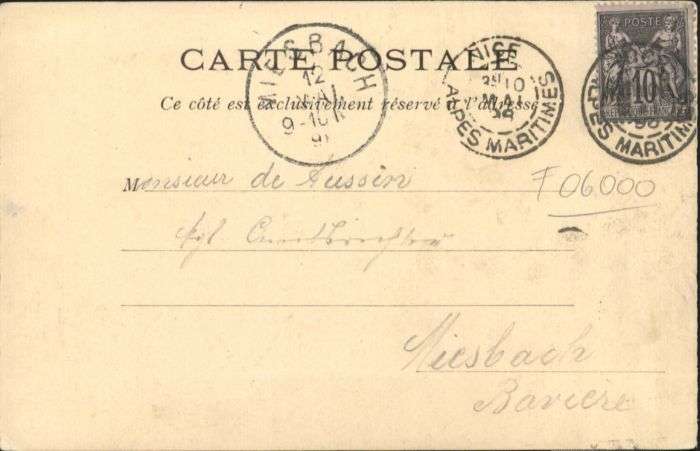 CARTE POSTALE
Ce côté est exclusivement réservé à l'adresse
MIESBACH
12
MAI
9-10
NICE
10
MAI
ALPES MARITIMES
POSTE
10
ALPES MARITIMES
Monsieur de
F 06000
kgl
Miesbach
Bavière